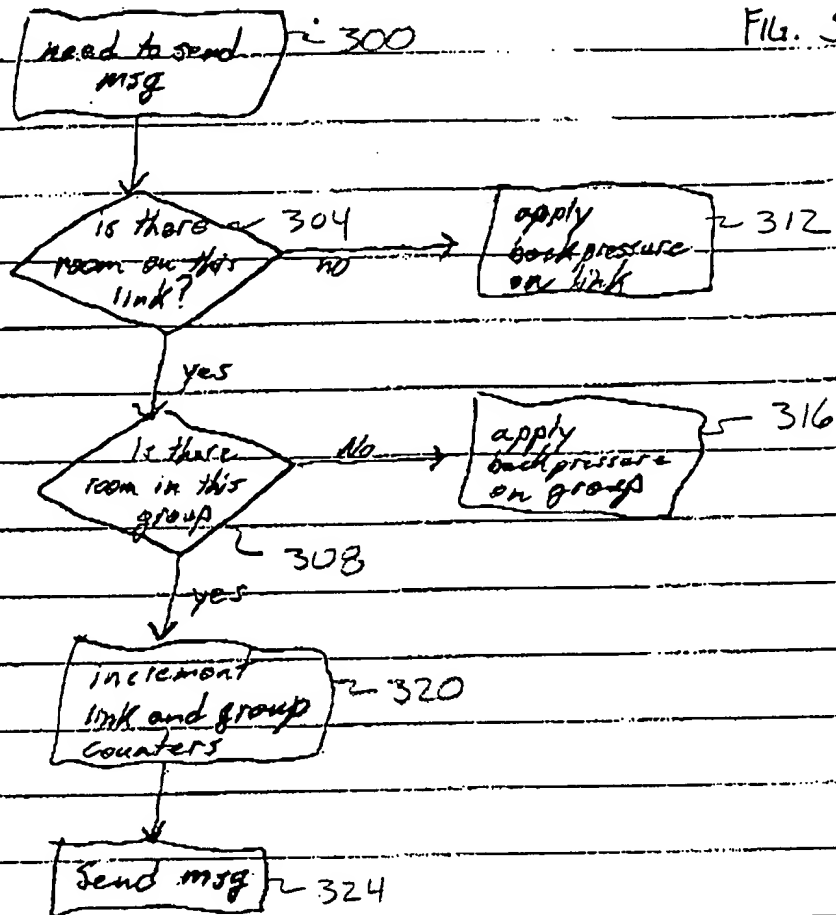 FIG. 3
need to send
msg
300
is there
room on this
link?
304
no
apply
backpressure
on link
312
yes
Is there
room in this
group
308
No
apply
backpressure
on group
316
yes
increment
link and group
counters
320
Send msg
324